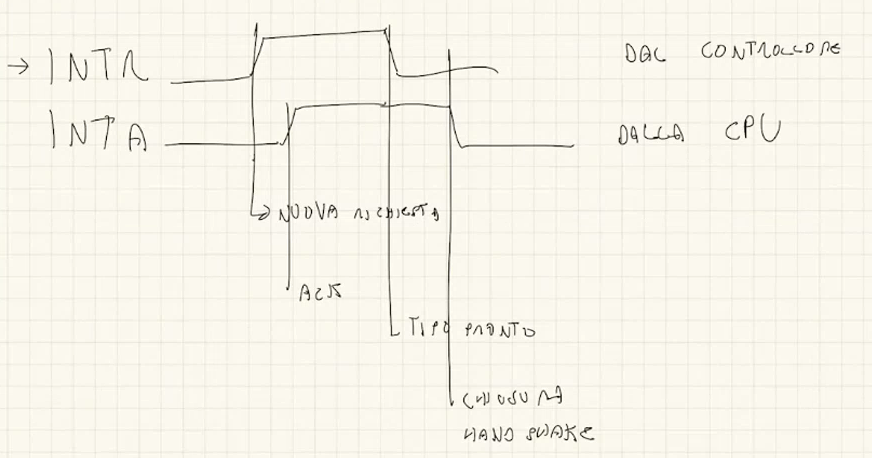 → INTR DAL CONTROLLORE
INTA DALLA CPU
NUOVA RICHIESTA
ACK
TIPO PRONTO
CHIUSURA
HANDSHAKE